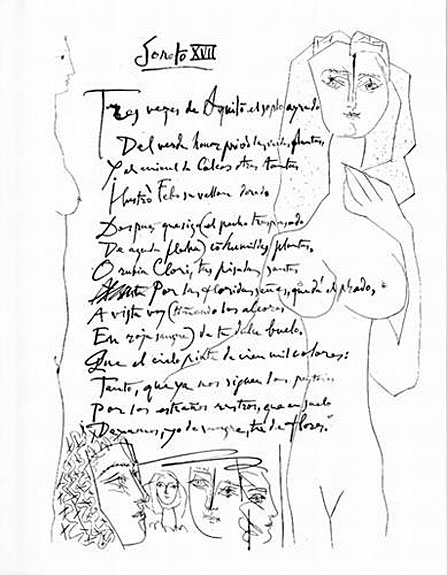 Soneto XVII
Tres vezes de Aquilõ el soplo ayrado
Del verde honor privó las verdes plantas,
Y al animal de Colcos otras tantas
Ilustró Febo su vellon dorado
Despues que sigo (el pecho traspasado
De aguda flecha) cõ humildes plantas,
O rubia Clori, tus pisadas santas
Por las floridas señas, que da el prado,
A vista voy (tiñendo los alcores
En roja sangre) de tu dulce buelo,
Que el cielo pinta de cien mil colores:
Tanto, que ya nos siguen los pastores
Por los estraños rastros, que en suelo
Dexamos, yo de sangre, tu de flores.